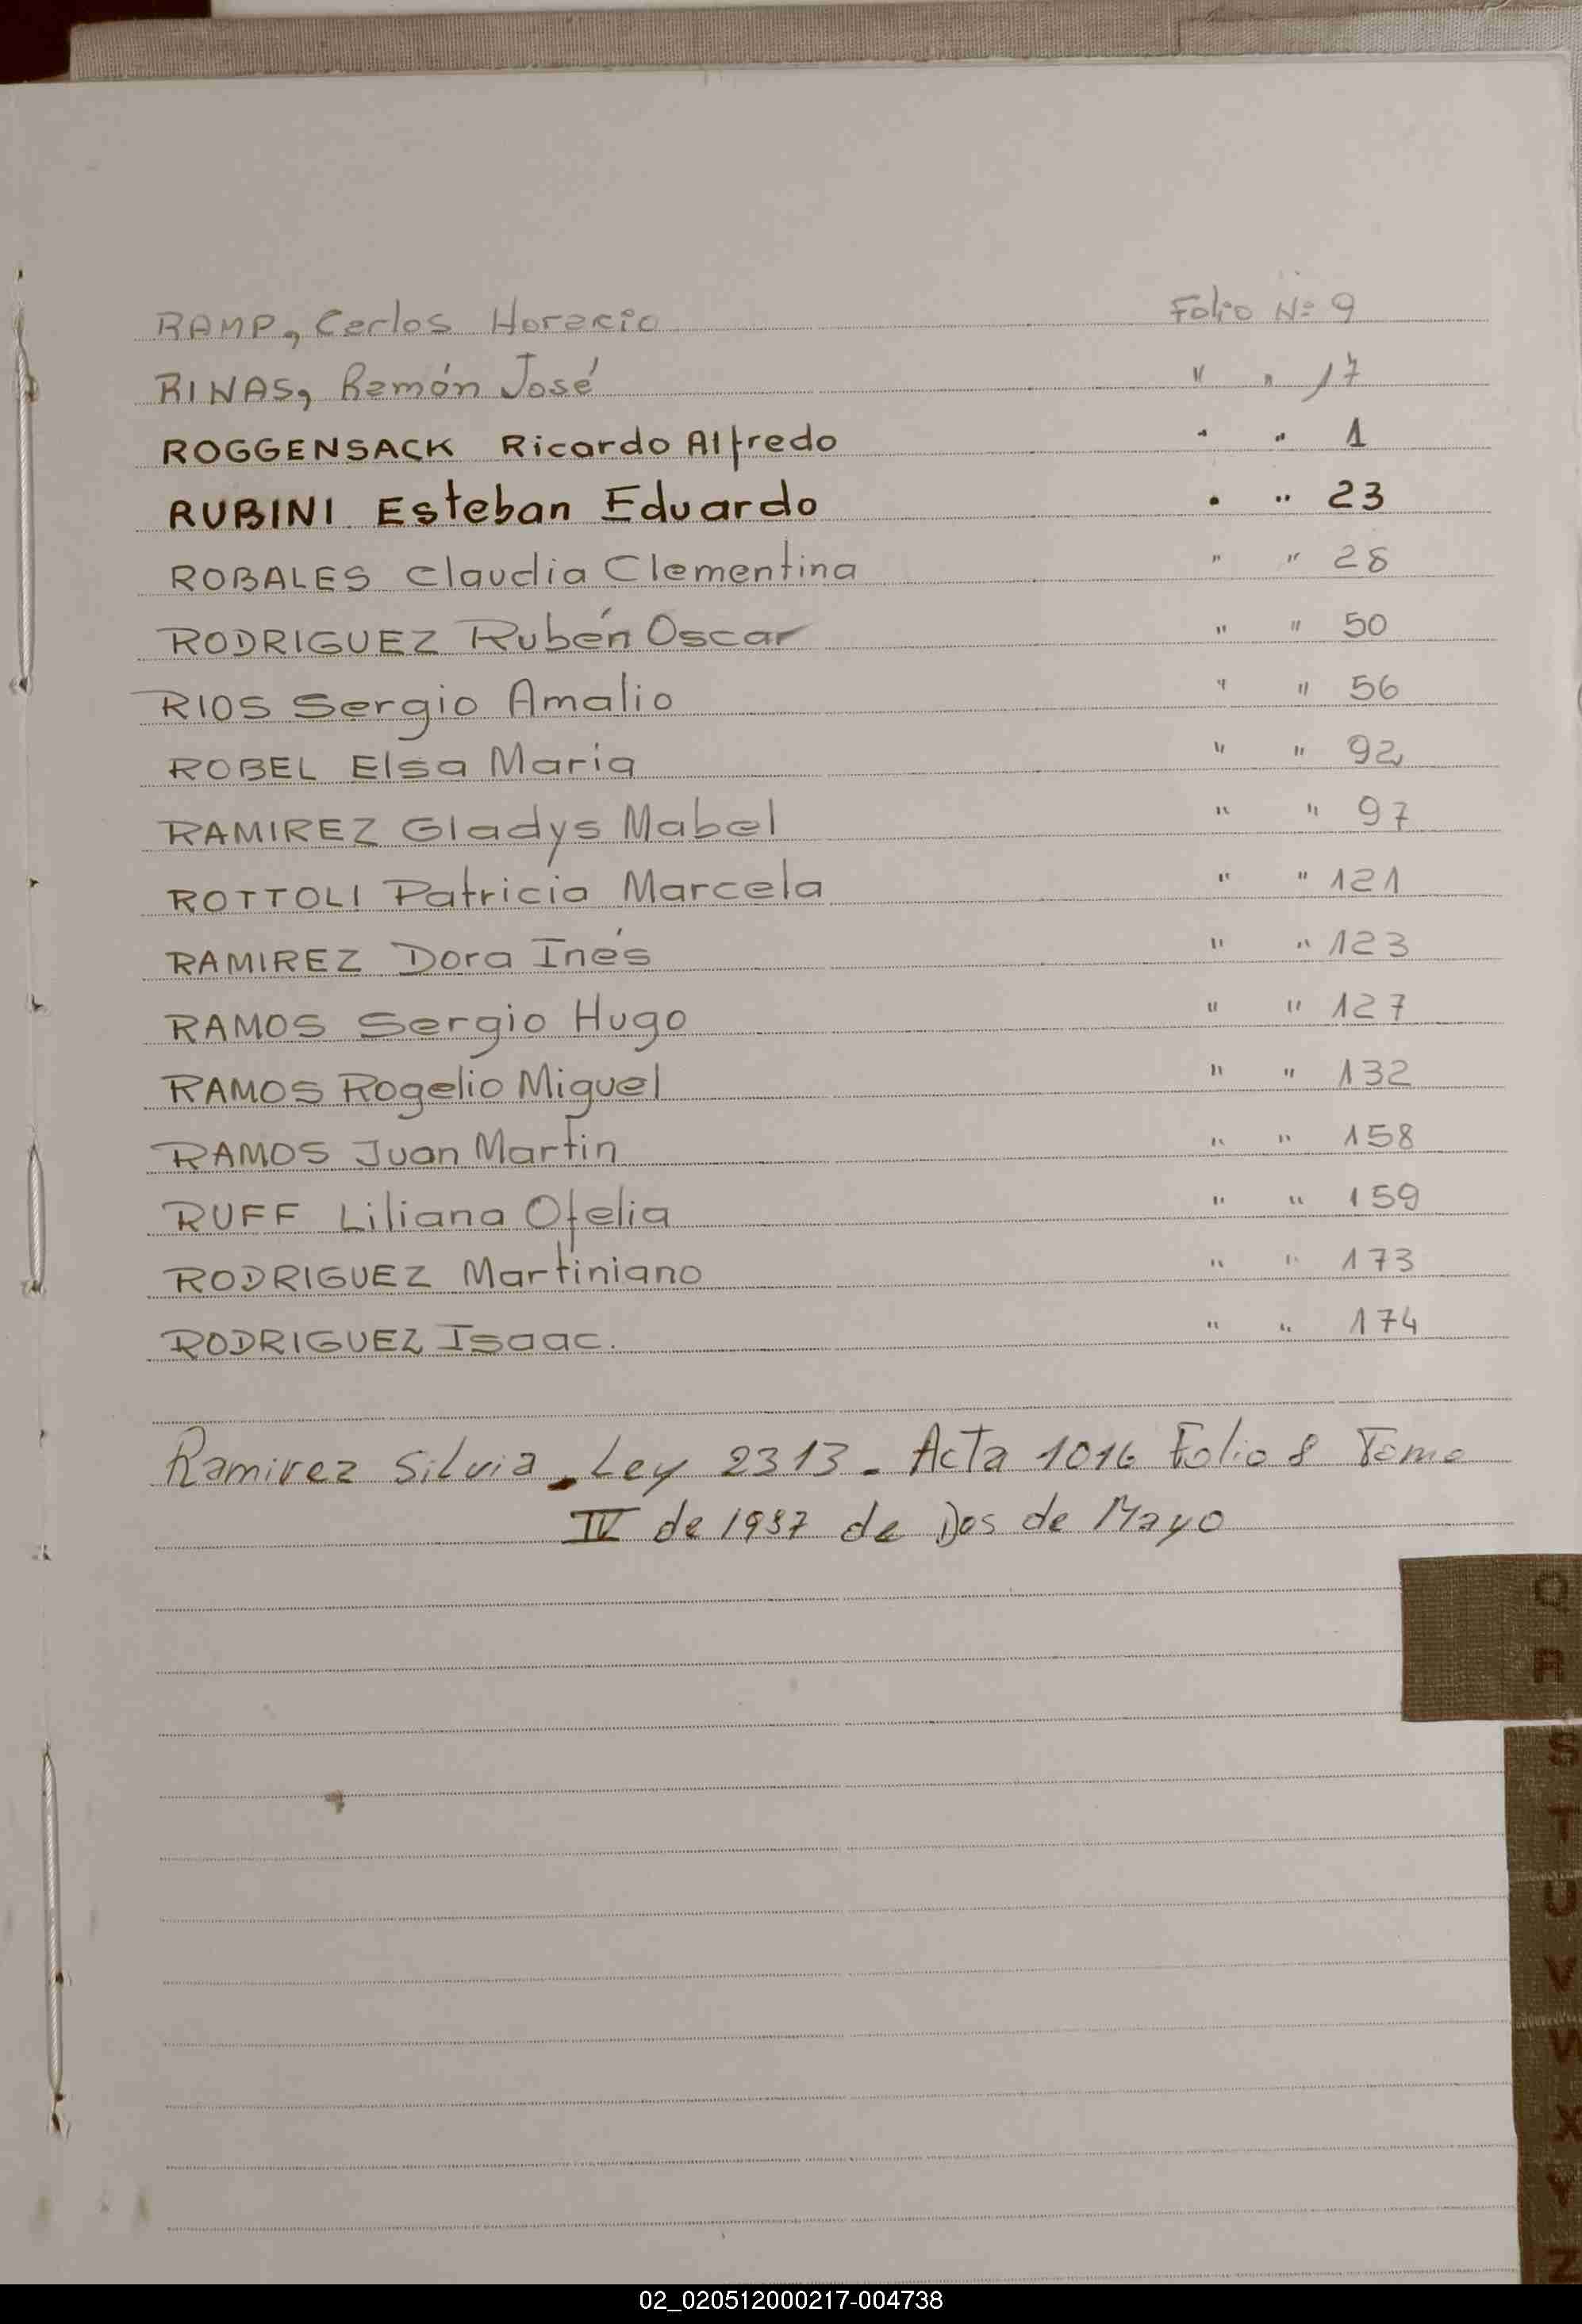 RAMP, Carlos Horacio Folio Nº 9
RINAS, Ramón José " " 17
ROGGENSACK Ricardo Alfredo " " 1
RUBINI Esteban Eduardo " " 23
ROBALES Claudia Clementina " " 28
RODRIGUEZ Rubén Oscar " " 50
RIOS Sergio Amalio " " 56
ROBEL Elsa Maria " " 92
RAMIREZ Gladys Mabel " " 97
ROTTOLI Patricia Marcela " " 121
RAMIREZ Dora Inés " " 123
RAMOS Sergio Hugo " " 127
RAMOS Rogelio Miguel " " 132
RAMOS Juan Martin " " 158
RUFF Liliana Ofelia " " 159
RODRIGUEZ Martiniano " " 173
RODRIGUEZ Isaac. " " 174
Ramirez Silvia. Ley 2313. Acta 1016 Folio 8 Tomo
IV de 1987 de Dos de Mayo
Q
R
S
T
U
V
W
X
Y
Z
02_020512000217-004738